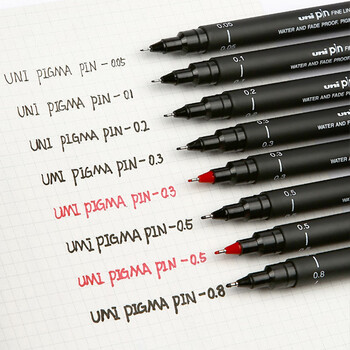 UNI PIGMA PIN-0.05
UNI PIGMA PIN-0.1
UNI PIGMA PIN-0.2
UNI PIGMA PIN-0.3
UMI PIGMA PIN-0.3
UMI PIGMA PIN-0.5
UMI PIGMA PIN-0.5
UMI PIGMA PIN-0.8
0.05 uni pin FINE LINE
0.05 WATER AND FADE PROOF, PIGM
0.1 uni pin FINE
0.1 WATER AND FADE PROOF
0.2 uni pin
0.2 WATER AND FADE
0.3
0.3 WATER AND
0.3
0.3
0.5
0.5
0.8